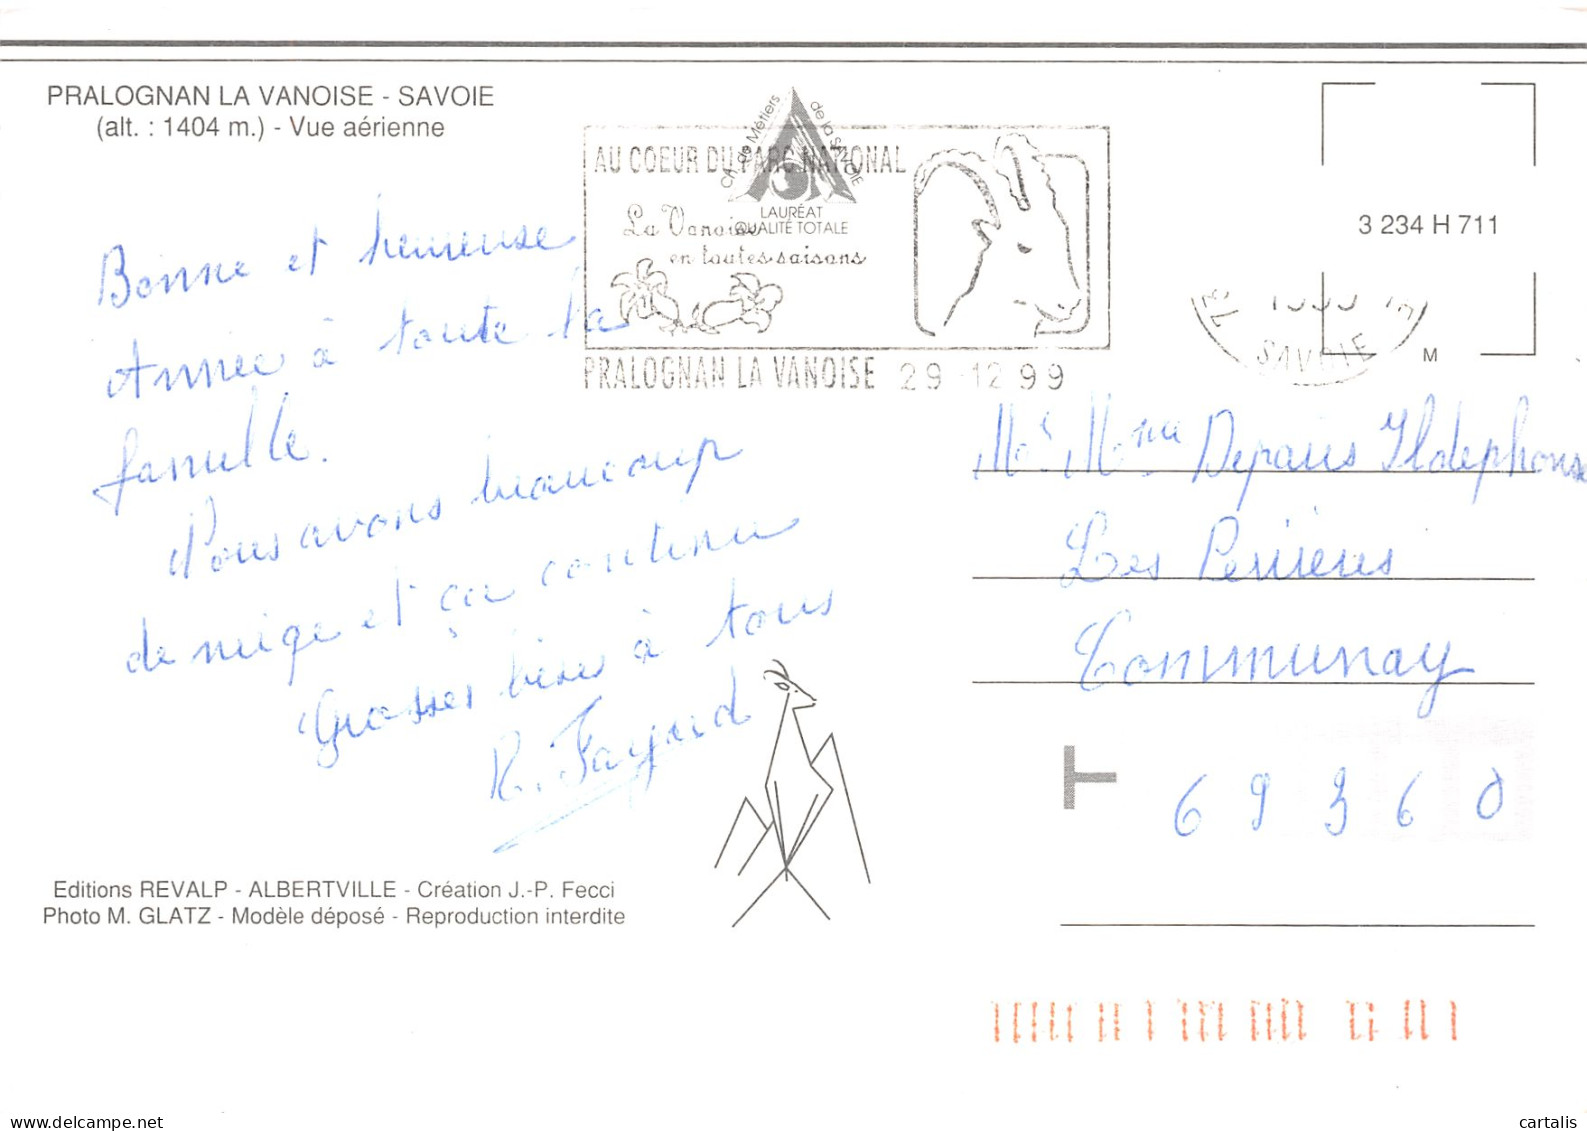 PRALOGNAN LA VANOISE - SAVOIE
(alt. : 1404 m.) - Vue aérienne
Ch. de Métiers de la SAVOIE
LAURÉAT
QUALITÉ TOTALE
AU COEUR DU PARC NATIONAL
La Vanoise
en toutes saisons
PRALOGNAN LA VANOISE 29 -12 99
3 234 H 711
SAVOIE
M
Bonne et heureuse
Année à toute la
famille.
Nous avons beaucoup
de neige et ça continue
Grosses bises à tous
R. Fayard
Mr Mme Deparis Ildephonse
Les Perrières
Communay
T
69360
Editions REVALP - ALBERTVILLE - Création J.-P. Fecci
Photo M. GLATZ - Modèle déposé - Reproduction interdite
delcampe.net
cartalis